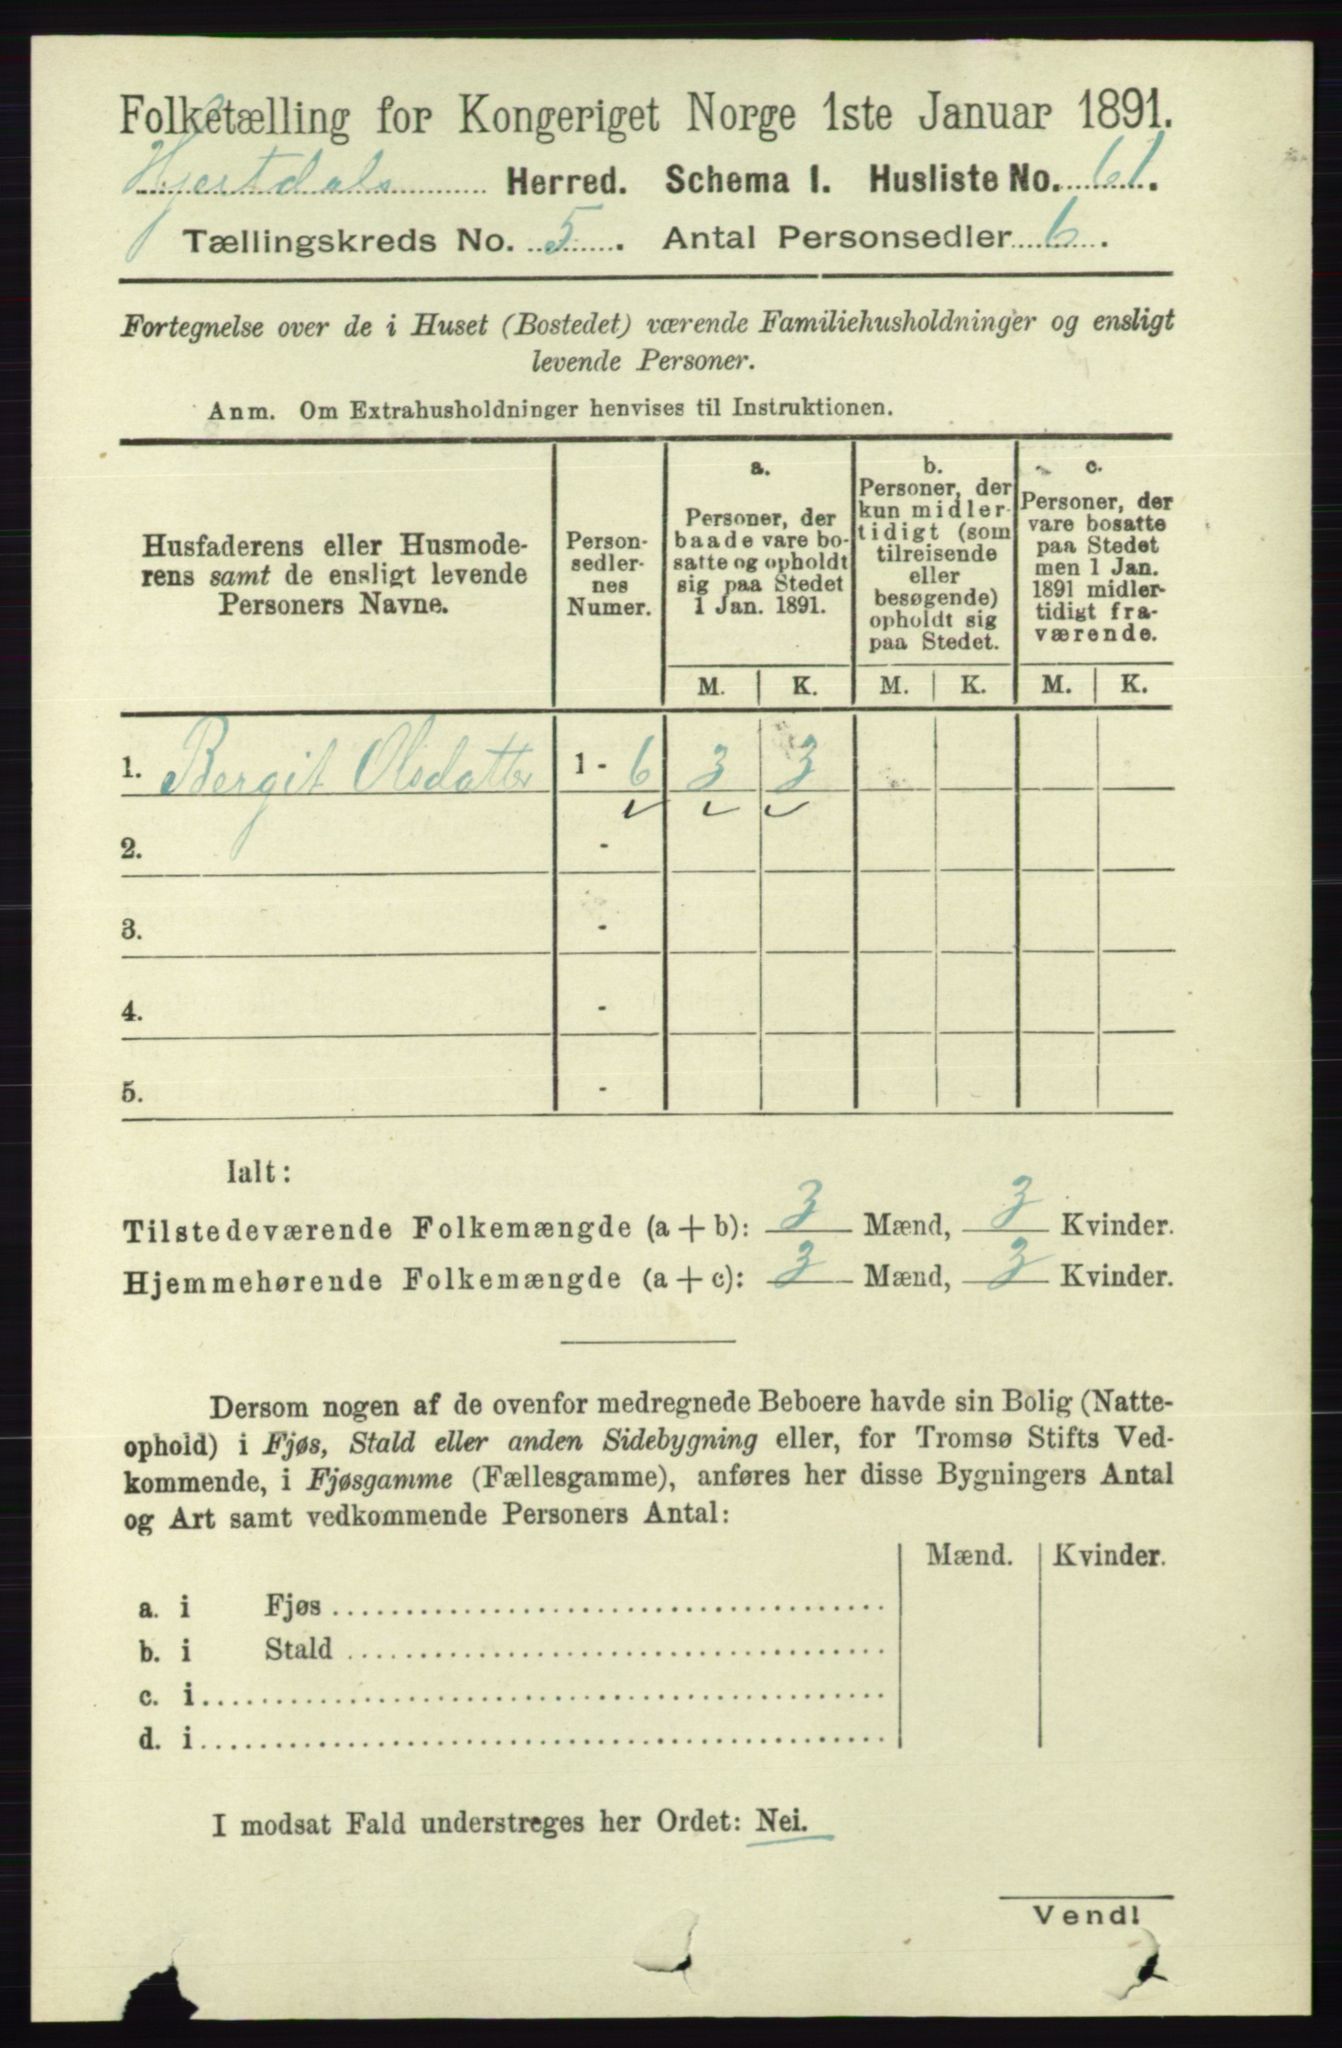 Folketælling for Kongeriget Norge 1ste Januar 1891.
Hjertdals Herred. Schema I. Husliste No. 61.
Tællingskreds No. 5. Antal Personsedler 6.
Fortegnelse over de i Huset (Bostedet) værende Familiehusholdninger og ensligt
levende Personer.
Anm. Om Extrahusholdninger henvises til Instruktionen.
Husfaderens eller Husmode-
rens samt de ensligt levende
Personers Navne.
Person-
sedler-
nes
Numer.
a.
Personer, der
baade vare bo-
satte og opholdt
sig paa Stedet
1 Jan. 1891.
b.
Personer, der
kun midler-
tidigt (som
tilreisende
eller
besøgende)
opholdt sig
paa Stedet.
c.
Personer, der
vare bosatte
paa Stedet
men 1 Jan.
1891 midler-
tidigt fra-
værende.
M. K. M. K. M. K.
1. Bergit Olsdatter 1 - 6 3 3
2. -
3. -
4. -
5. -
Ialt:
Tilstedeværende Folkemængde (a + b): 3 Mænd, 3 Kvinder.
Hjemmehørende Folkemængde (a + c): 3 Mænd, 3 Kvinder.
Dersom nogen af de ovenfor medregnede Beboere havde sin Bolig (Natte-
ophold) i Fjøs, Stald eller anden Sidebygning eller, for Tromsø Stifts Ved-
kommende, i Fjøsgamme (Fællesgamme), anføres her disse Bygningers Antal
og Art samt vedkommende Personers Antal:
Mænd. Kvinder.
a. i Fjøs
b. i Stald
c. i
d. i
I modsat Fald understreges her Ordet: Nei.
Vend!